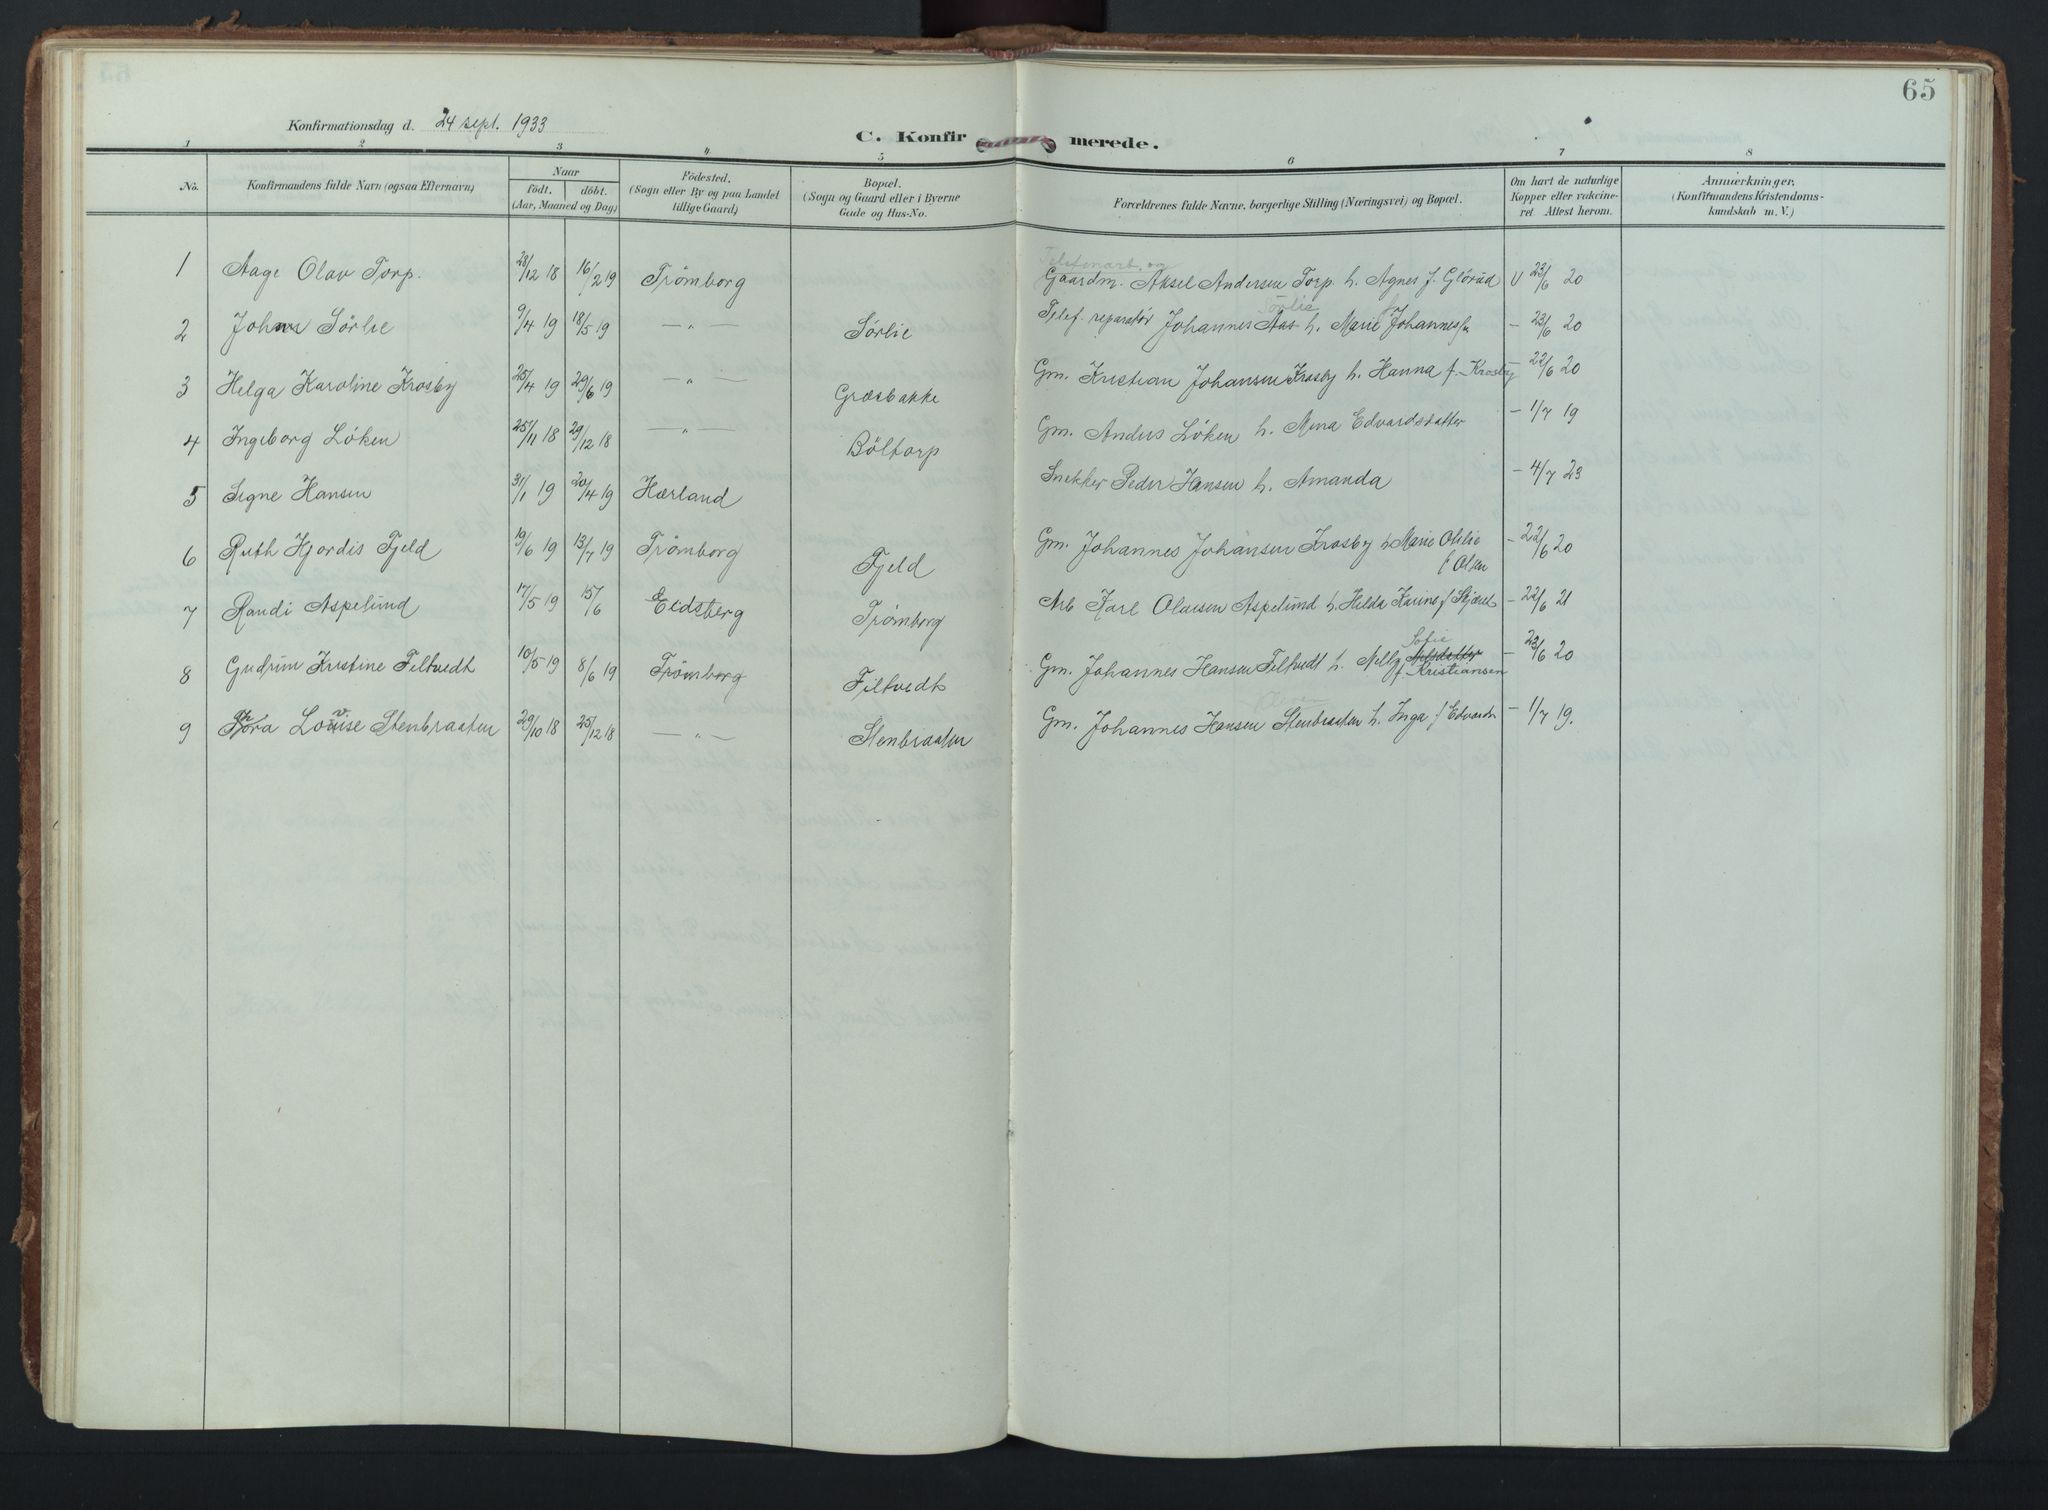 65
Konfirmationsdag d. 24 sept. 1933
C. Konfir merede.
1 2 3 4 5 6 7 8
No. Konfirmandens fulde Navn (ogsaa Efternavn) Naar födt. döbt. (Aar, Maaned og Dag) Födested. (Sogn eller By og paa Landet tillige Gaard) Bopæl. (Sogn og Gaard eller i Byerne Gade og Hus-No. Forældrenes fulde Navne, borgerlige Stilling (Næringsvei) og Bopæl. Om havt de naturlige Kopper eller vakcineret. Attest herom. Anmærkninger. (Konfirmandens Kristendomskundskab m. V.)
Telefonarb. og
1 Aage Olav Torp. 28/12 18 16/2 19 Trömborg Gaardm. Aksel Andersen Torp h. Agnes f. Glörud v 23/6 20
Sörlie
2 Johan Sörlie 9/4 19 18/5 19 — „ — Sörlie Telef. reparatør Johannes Aas h. Marie Johannesen — 23/6 20
3 Helga Karoline Krosby 25/4 19 29/6 19 — „ — Græsbakke Gm. Kristian Johansen Krosby h. Hanna f. Krosby — 22/6 20
4 Ingeborg Löken 25/11 18 29/12 18 — „ — Böltorp Gm. Anders Löken h. Mina Edvardsdatter — 1/7 19
5 Signe Hansen 31/1 19 20/4 19 Hærland Snekker Peder Hansen h. Amanda — 4/7 23
6 Ruth Hjördis Fjeld 19/6 19 13/7 19 Trömborg Fjeld Gm. Johannes Johansen Krosby h Marie Otilie f Olsen — 22/6 20
7 Randi Aspelund 17/5 19 15/6 Eidsberg Trömborg Arb Karl Olausen Aspelund h. Hilda Karine f — 22/6 21
Sofie
8 Gudrun Kristine Filtvedt 10/5 19 8/6 19 Trömborg Filtvedt Gm. Johannes Hansen Filtvedt h. Nelly Nilsdatter f Kristiansen — 23/6 20
9 Thora Lovise Stenbraaten 29/10 18 25/12 18 — „ — Stenbraaten Gm. Johannes Hansen Stenbraaten h. Inga f Edvards — 1/7 19.